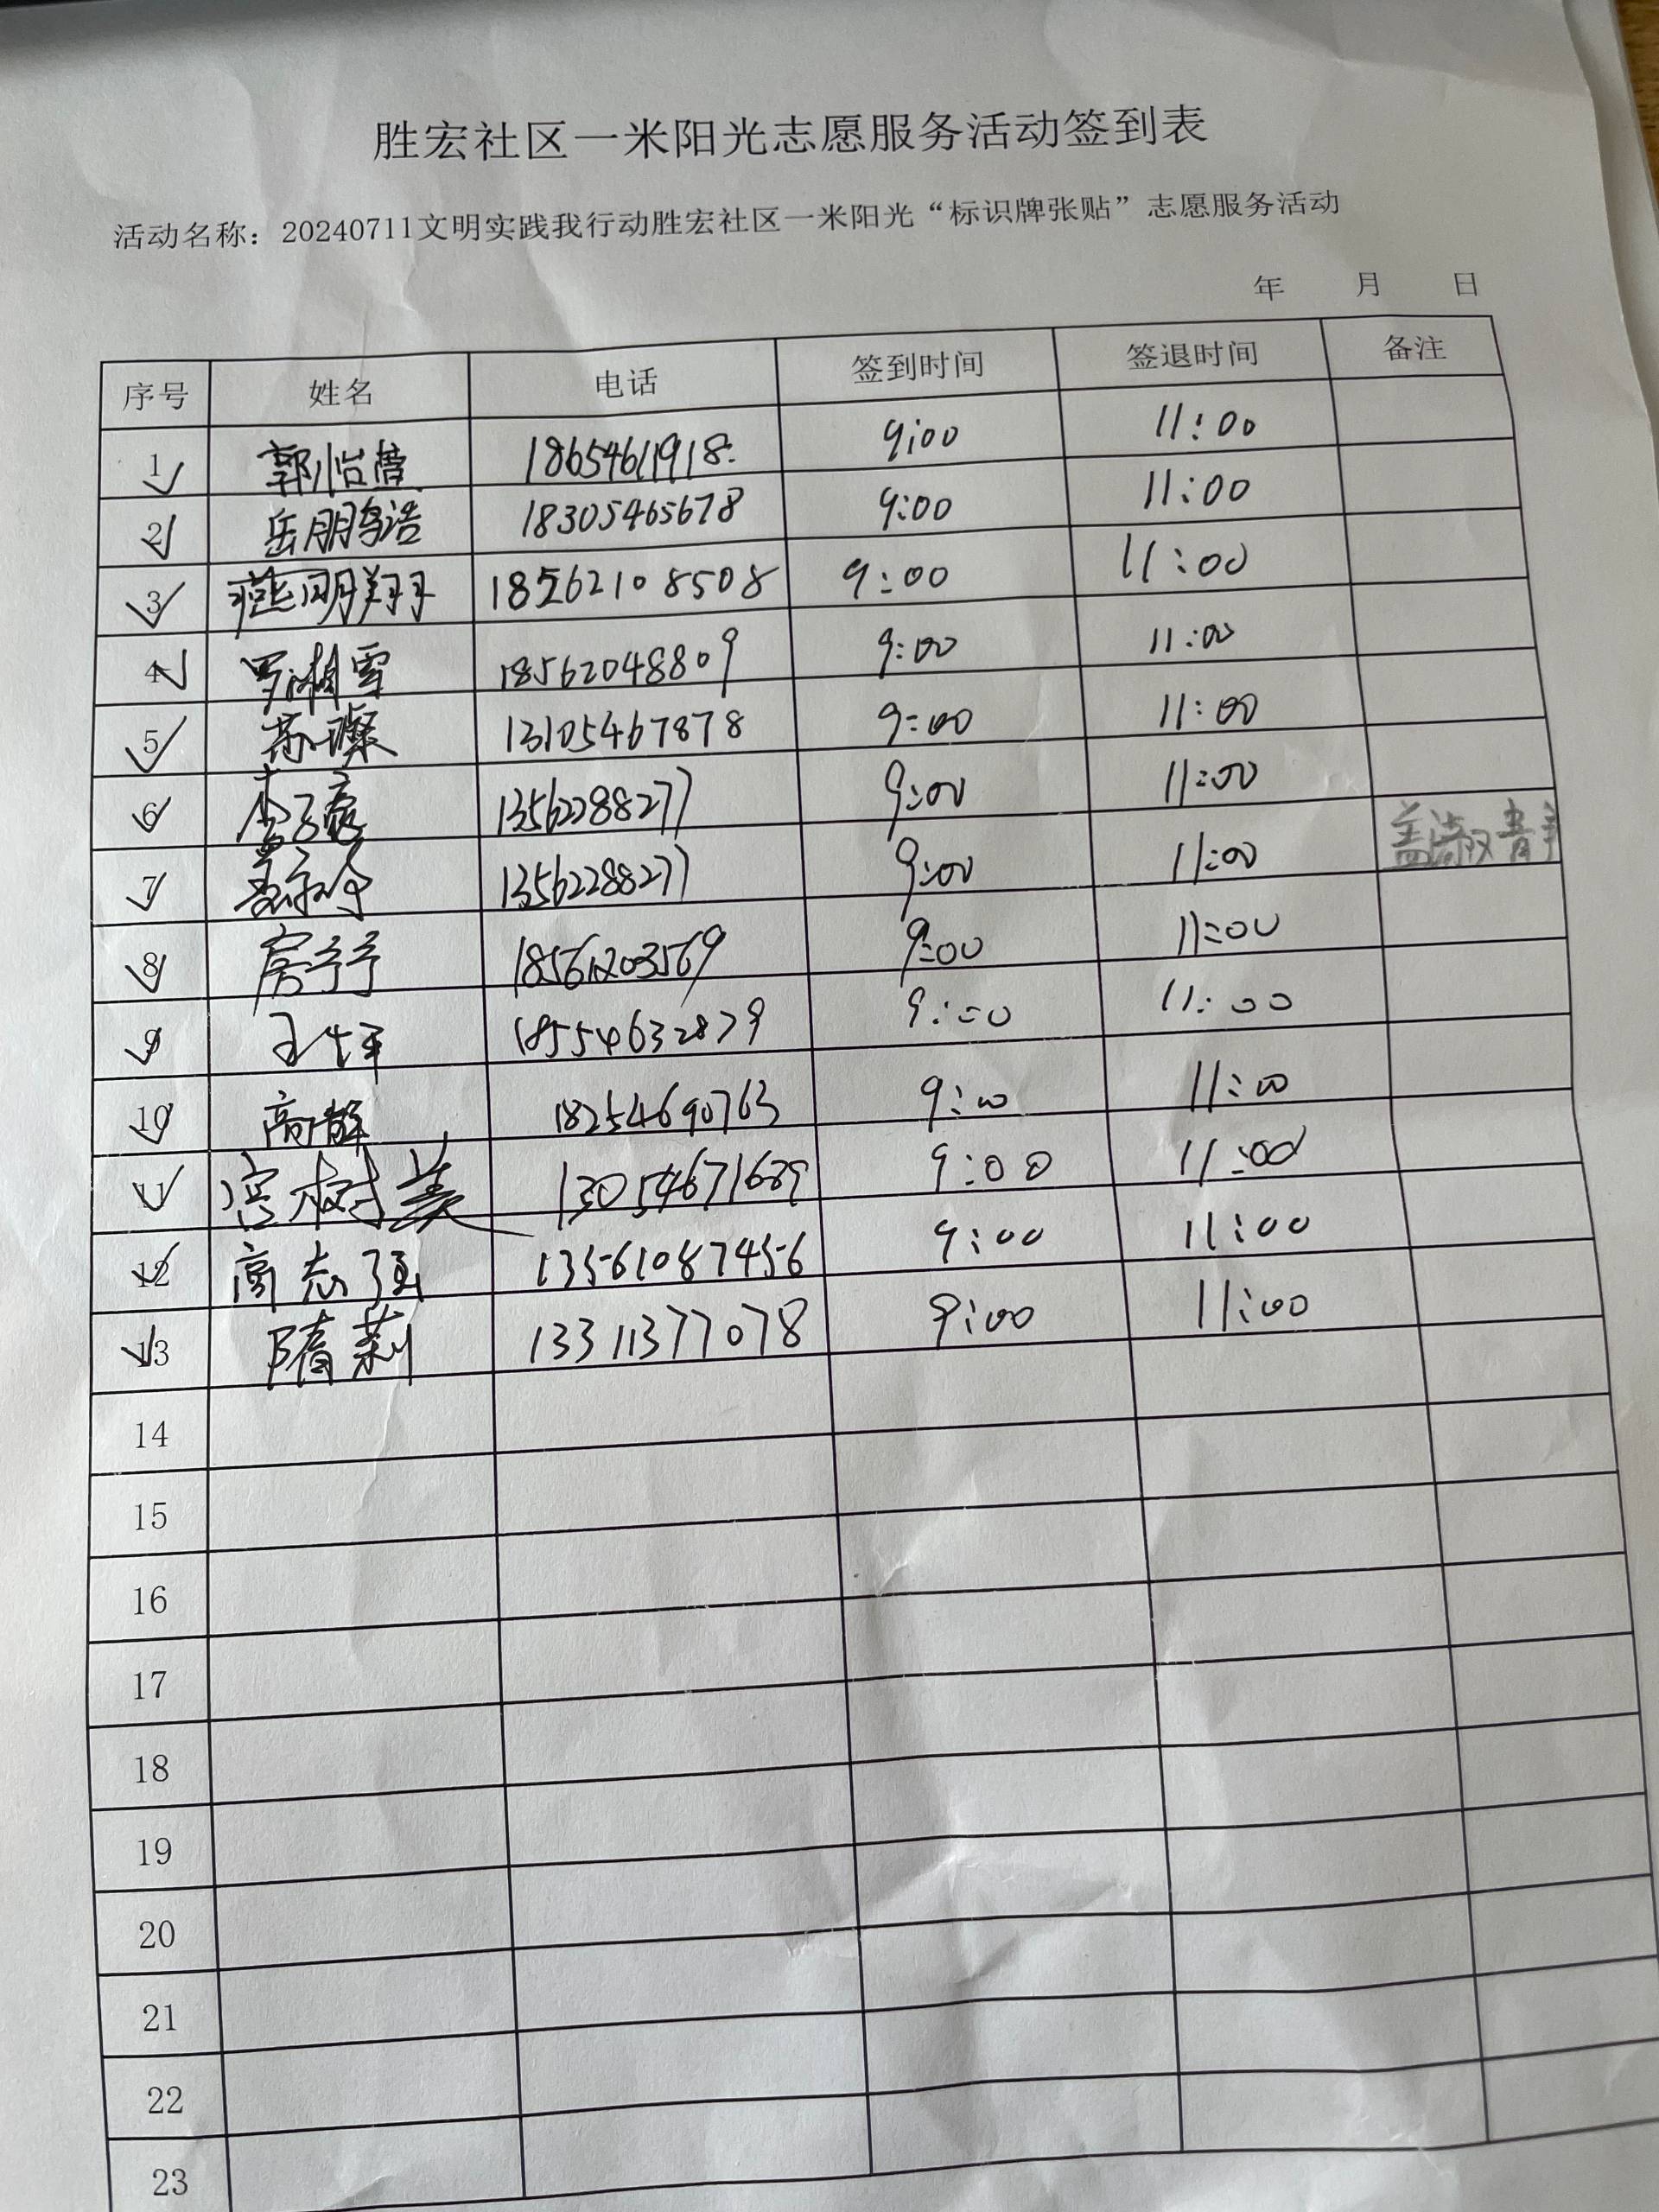 胜宏社区一米阳光志愿服务活动签到表
活动名称：20240711文明实践我行动胜宏社区一米阳光“标识牌张贴”志愿服务活动
年 月 日
序号 姓名 电话 签到时间 签退时间 备注
1 郭怡萱 18654611918. 9:00 11:00
2 岳朋浩 18305465678 9:00 11:00
3 燕明翔 18562108508 9:00 11:00
4 罗湘雪 18562048809 9:00 11:00
5 苏璨 13105467878 9:00 11:00
6 13562288277 9:00 11:00
7 13562288277 9:00 11:00 盖淑青
8 房宁宁 18561203569 9:00 11:00
9 18554632879 9:00 11:00
10 高静 18254690763 9:00 11:00
11 宫树美 13054671689 9:00 11:00
12 高志强 13561087456 9:00 11:00
13 隋莉 13311377078 9:00 11:00
14
15
16
17
18
19
20
21
22
23